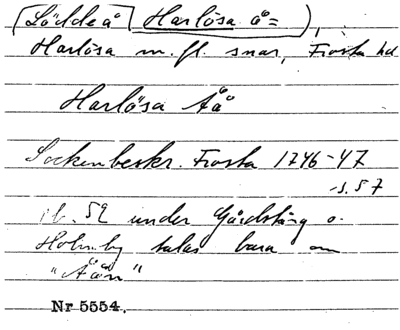 [Löddeå] Harlösa å=),
Harlösa m. fl. snar, Frosta hd
Harlösa Åå
Sockenbeskr. Frosta 1746-47
s. 57
ib. 52 under Gårdstång o.
Holmby talas bara om
"Åån"
Nr 5554.